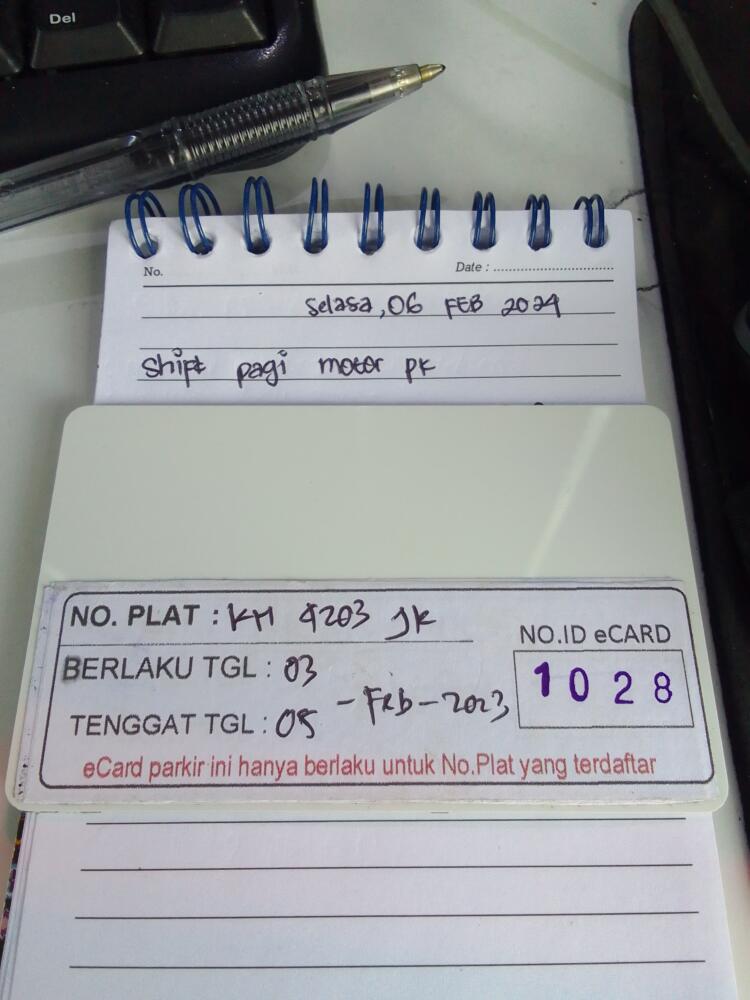 Del
No.
Date : ................................
Selasa, 06 FEB 2024
Shift pagi motor pk
NO. PLAT : KH 4203 JK
NO.ID eCARD
1028
BERLAKU TGL : 03
- Feb - 2023
TENGGAT TGL : 05
eCard parkir ini hanya berlaku untuk No.Plat yang terdaftar